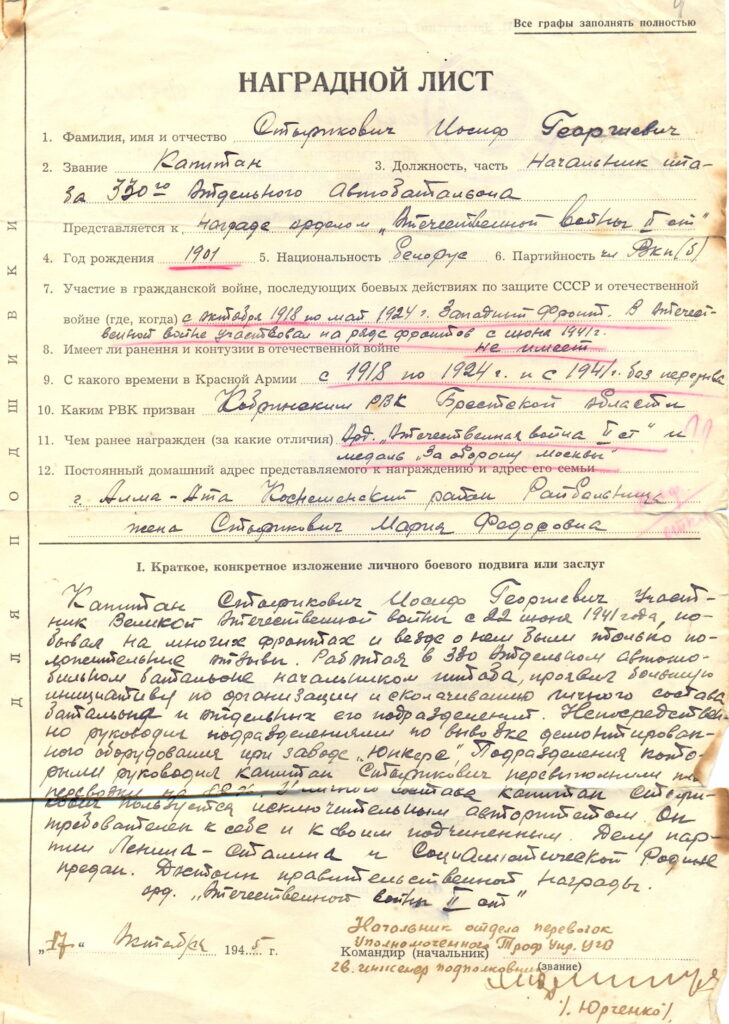 Все графы заполнять полностью
НАГРАДНОЙ ЛИСТ
1. Фамилия, имя и отчество Стырикович Иосиф Георгиевич
2. Звание Капитан 3. Должность, часть Начальник шта-
ба 330го Отдельного Автобатальона
Представляется к награде орденом „Отечественной войны II ст"
4. Год рождения 1901 5. Национальность Белорус 6. Партийность чл ВКП(б)
7. Участие в гражданской войне, последующих боевых действиях по защите СССР и отечественной
войне (где, когда) с октября 1918 по май 1924 г. Западный фронт. В Отечест-
венной войне участвовал на ряде фронтов с июня 1941 г.
8. Имеет ли ранения и контузии в отечественной войне не имеет
9. С какого времени в Красной Армии с 1918 по 1924 г. и с 1941 г. без перерыва
10. Каким РВК призван Кобринским РВК Брестской области
11. Чем ранее награжден (за какие отличия) Орд. „Отечественная война II ст" и
медаль „За оборону москвы"
12. Постоянный домашний адрес представляемого к награждению и адрес его семьи
г. Алма-Ата район Райбольница
жена Стырикович Мария Федоровна
I. Краткое, конкретное изложение личного боевого подвига или заслуг
Капитан Стырикович Иосиф Георгиевич Участ-
ник Великой Отечественной войны с 22 июня 1941 года, по-
бывал на многих фронтах и везде о нем были только по-
ложительные отзывы. Работая в 330 Отдельном автомо-
бильном батальоне начальником штаба, проявил большую
инициативу по организации и сколачиванию личного состава
батальона и отдельных его подразделений. Непосредствен-
но руководил подразделениями по вывозке демонтирован-
ного оборудования при заводе „Юнкерс", Подразделения кото-
рыми руководил капитан Стырикович перевыполнили план
перевозки на У личного состава капитан Стыри-
кович пользуется исключительным авторитетом. Он
требователен к себе и к своим подчиненным. Делу пар-
тии Ленина-Сталина и Социалистической Родине
предан. Достоин правительственной награды.
орд. „Отечественной войны II ст"
„17" Октября 1945 г.
Начальник отдела перевозок
Уполномоченного Троф Упр. УГО
Командир (начальник)
гв. инженер подполковник (звание)
/. Юрченко /.
ДЛЯ ПОДШИВКИ